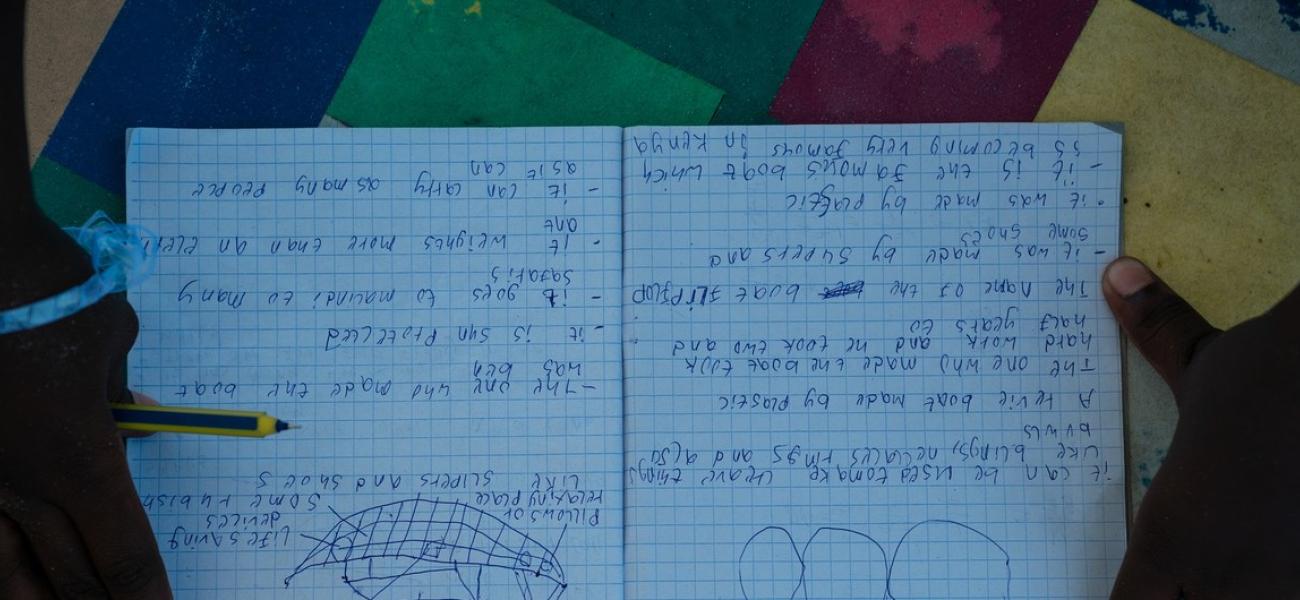 it can be used tomake weare things
Like blings, neclaces rings and also
bowls
A boat made by Plastic
The one who made the boat took
hard work and he took two and
half years to
The name of the boat FLIPFLOP
- it was made by slipers and
some shoes
• it was made by plastic
- it is the famous boat which
is becoming very famous in Kenya
Life saving
devices
Pillows or
relaxing place
some rubish
Like slipers and shoes
- The one who made the boat
was ben
- it is sun Protected
- it goes to malindi to many
safaris
- it weighes more than an eleph
ant
- it can carry as many people
as it can